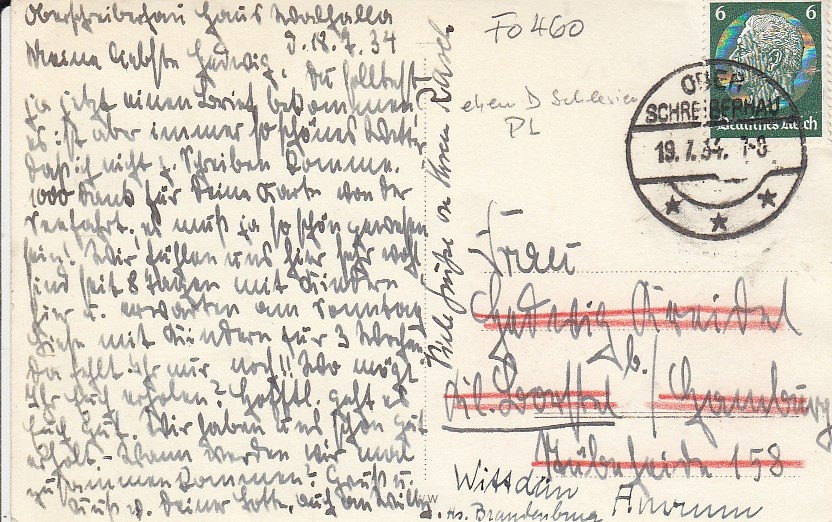 Oberschreiberhau Haus Walhalla
d. 18.7.34
Meine liebste Hedwig. Du solltest
ja jetzt einen Brief bekommen
es ist aber immer so schönes Wetter
daß ich nicht z. Schreiben komme.
1000 Dank für Deine Karte von der
Seefahrt. es muß ja so schön gewesen
sein! Wir fühlen uns hier sehr wohl
sind seit 8 Tagen mit Kindern
hier u. erwarten am Sonntag
mit Kindern für 3 Wochen
da fehlt Ihr nur noch!! Wo mögt
Ihr Euch erholen? Hofftl. geht es
Euch gut. Wir haben uns schön gut
erholt - Wann werden wir mal
zusammen kommen? Gruß u.
Kuß v. Deiner Lotte, auch an Willy.
Viele Grüße von Ihrem
Fo 460
ehem D Schlesien
PL
6 6
Deutsches Reich
OBER
SCHREIBERHAU
19.7.34. 7-8
Frau
Hedwig
b./Hamburg
158
Wittdün
Hs. Brandenburg
Amrum